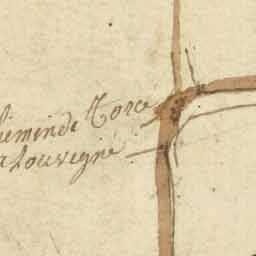 hemin de Torcé
a Louvigné